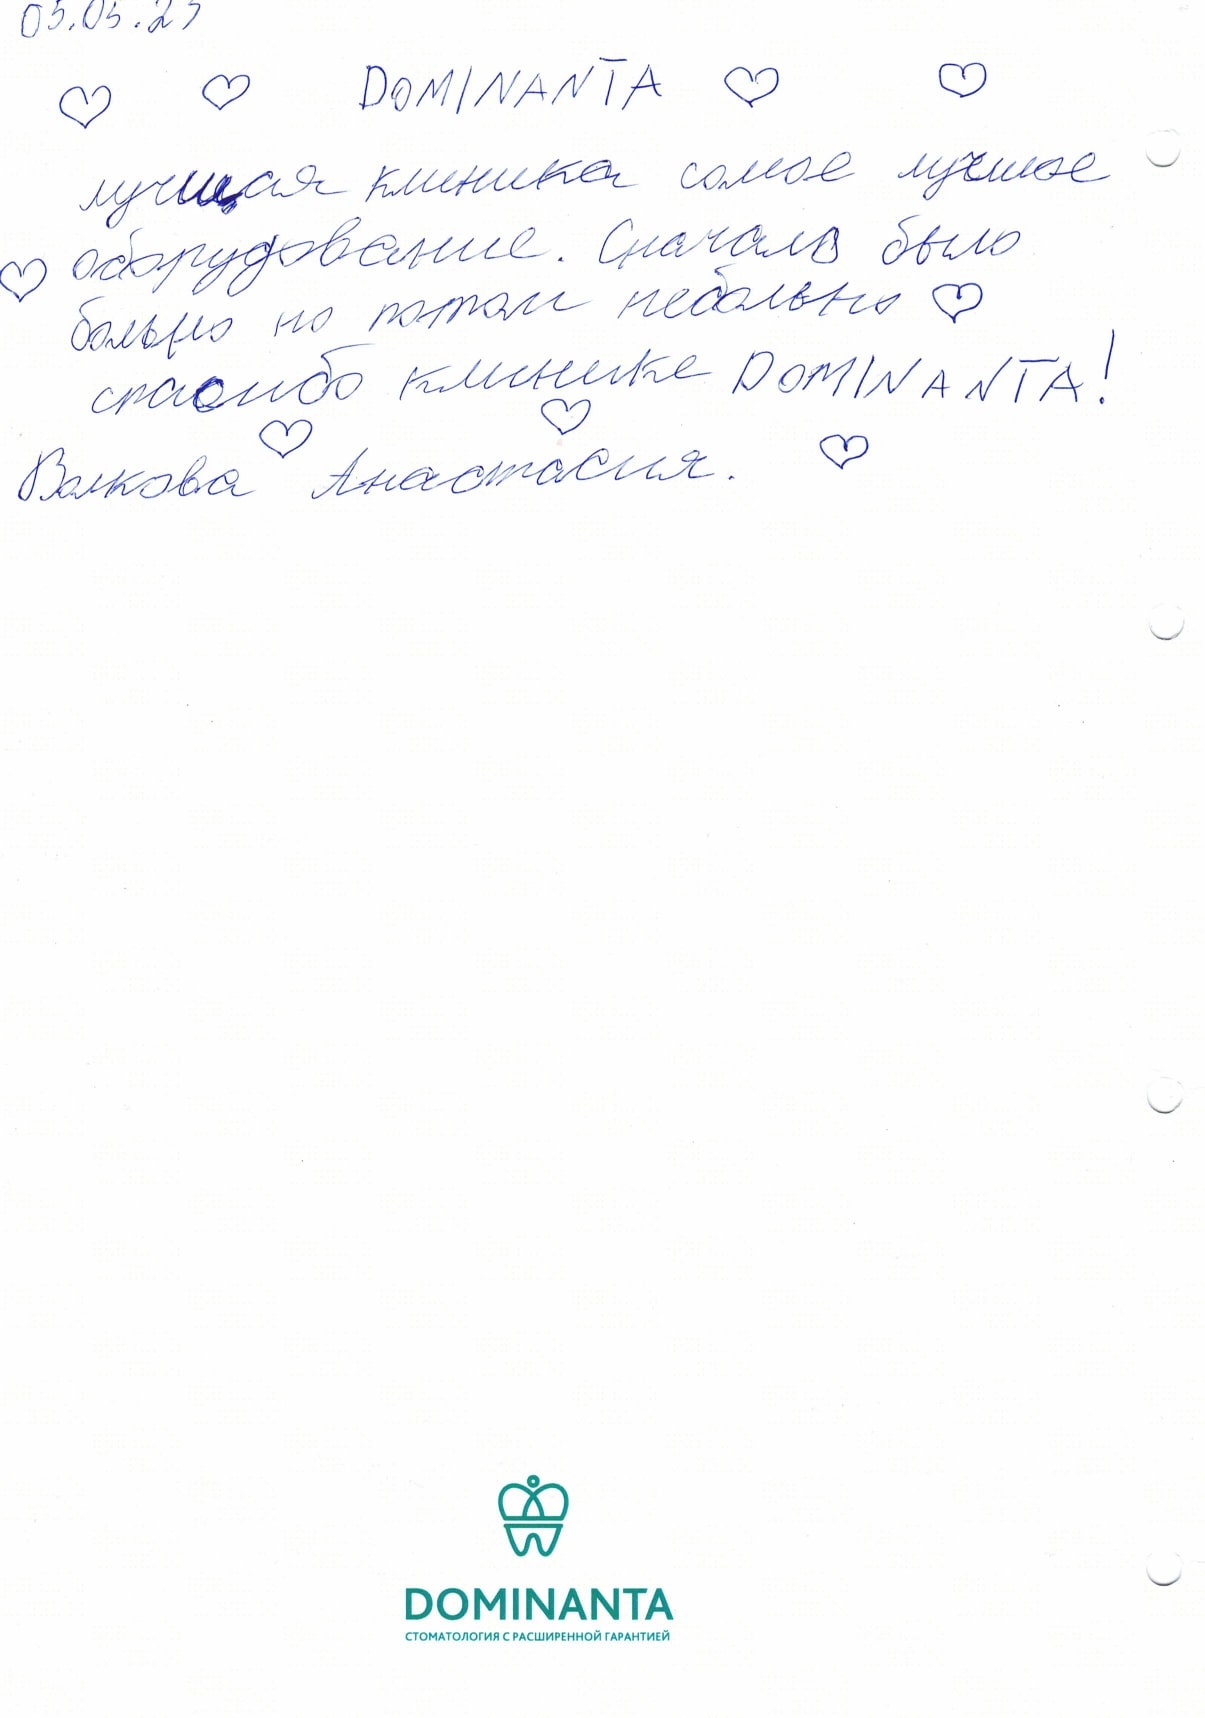 05.05.23
DOMINANTA
лучшая клиника самое лучшее
оборудование. Сначала было
больно но потом небольно
спасибо клинике DOMINANTA!
Волкова Анастасия.
DOMINANTA
СТОМАТОЛОГИЯ С РАСШИРЕННОЙ ГАРАНТИЕЙ